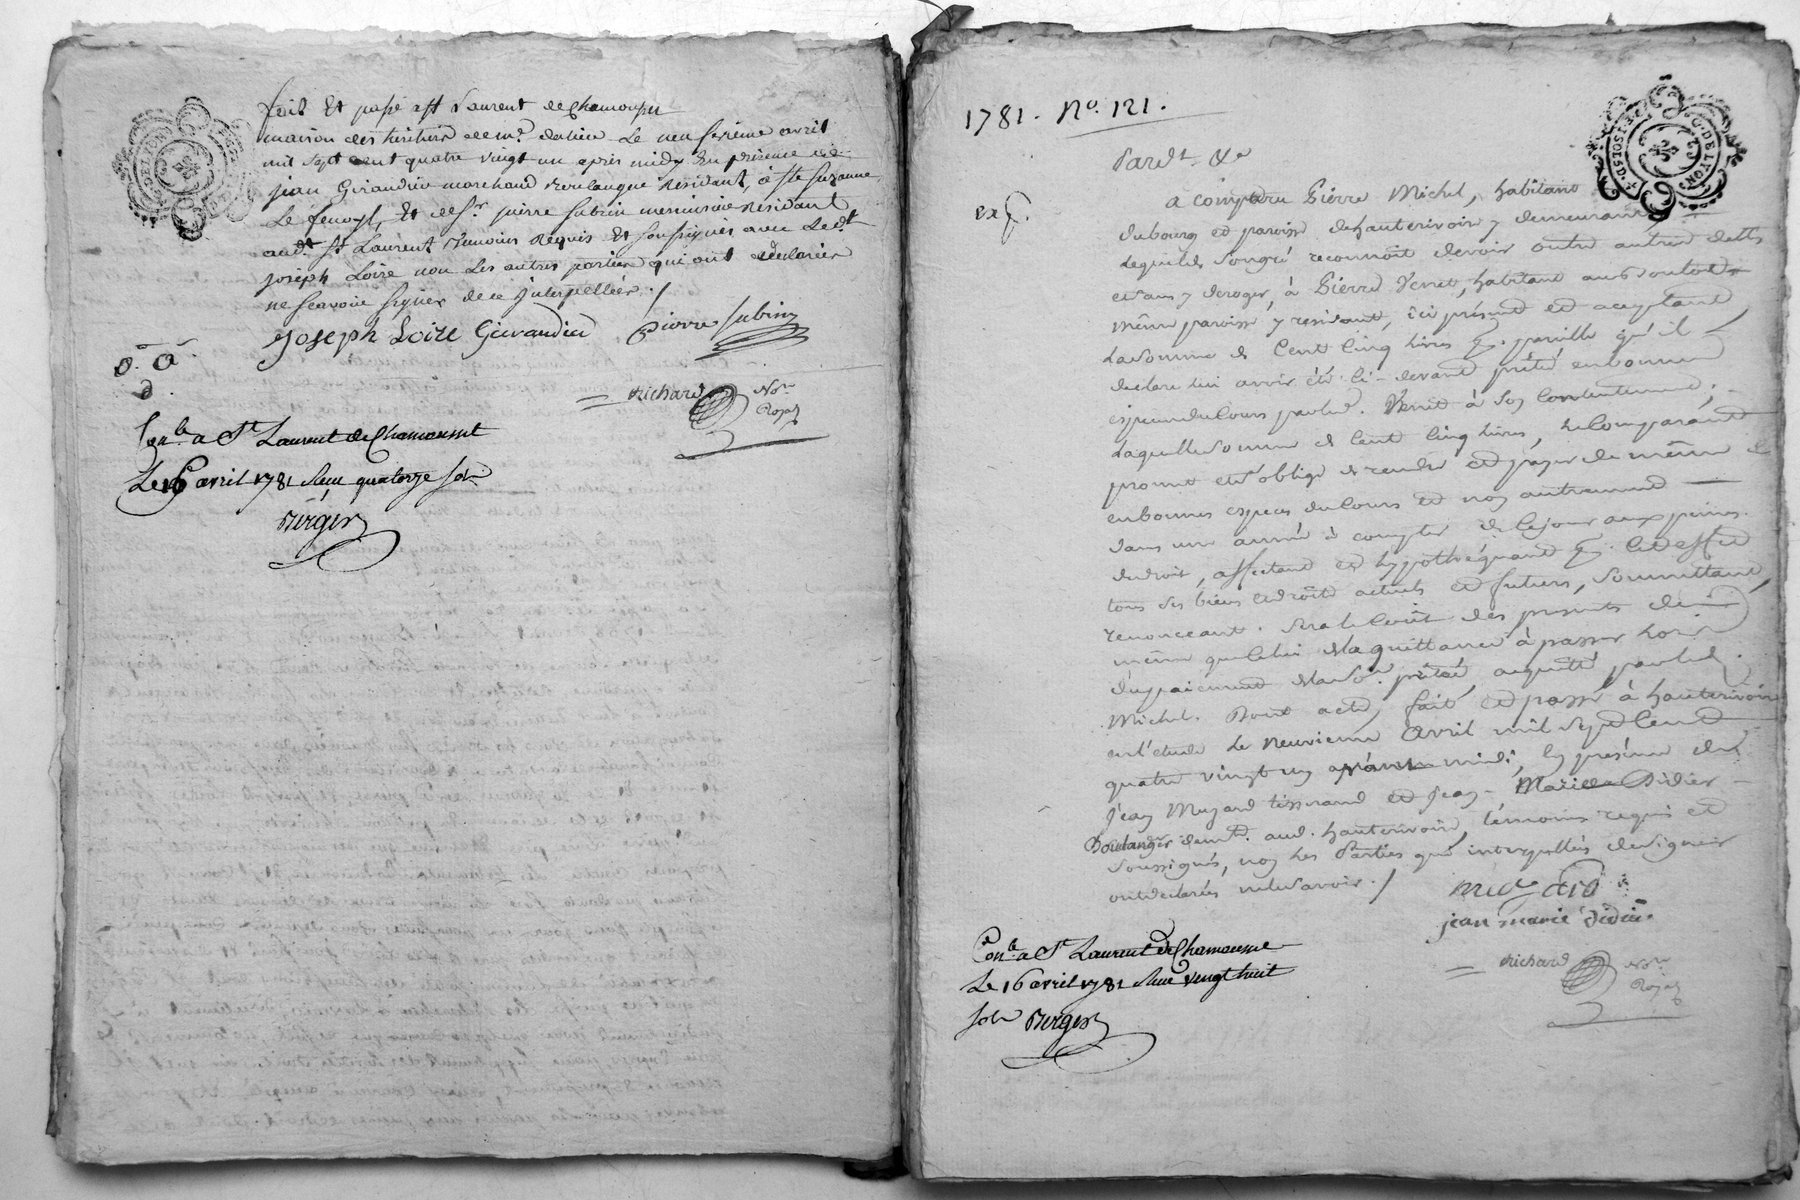 fait Et passé a St Laurent de Chamousset
maison des heritiers de me. dutieu Le neufvième avril
mil sept cent quatre vingt un après midy En présence de
jean Girandrie marchand Boulangue Résidant, à Ste Suzanne
Le fenoyl, Et de Sr. pierre subrin menuisier Résidant
aud.t St Laurent Temoins Requis Et soussignés avec Led.t
joseph Loire non Les autres parties qui ont declarées
ne scavoir signer de ce Interpellées /
Joseph Loire Girandrié Pierre Subrin
Richard Nore
Royal
Con.lé a St Laurent de Chamousset
Le 16 avril 1781 Reçu quatorze sols
Berger
1781. No. 121.
Pardt. &a
exp.
a Comparu Pierre Michel, habitant
du bourg et paroisse de hauterivoire y demeurant
Lequel de son gré reconnoit devoir outre autres dettes
et sans y deroger, à Pierre Venet, habitant
même paroisse y residant, ici présent et aceptant
La somme de Cent Cinq livres pareille qu'il
declare lui avoir été ci-devant prêté en bonnes
especes du Cours par led. Venet à son Contentement,
Laquelle somme de Cent Cinq livres, le Comparant
promet et s'oblige de rendre et payer de même
en bonnes especes du Cours et non autrement
dans une année à compter de ce jour aux peines
de droit, affectant et hypothéquant pr. Cet effet
tous ses biens et droits actuels et futurs, soumettant,
renonceant. Sera le Coût des presents de
même que Celui de la quittance à passer lors
du payement de la so. prêtée, acquitté par led.
Michel. Dont acte, fait et passé à hauterivoire
en l'étude Le Neuvieme Avril mil sept Cent
quatre vingt un après midi, En présence de
Jean Muzard tisserand et Jean-Marie Didier
Boulanger demt. aud. hauterivoire, témoins requis et
soussignés, non Les Parties qui interpellées de signer
ont declarées ne le savoir. /
jean marie didier
Richard Nore
Royal
Con.lé a St Laurent de Chamousset
Le 16 avril 1781 Reçu vingt huit
sols Berger